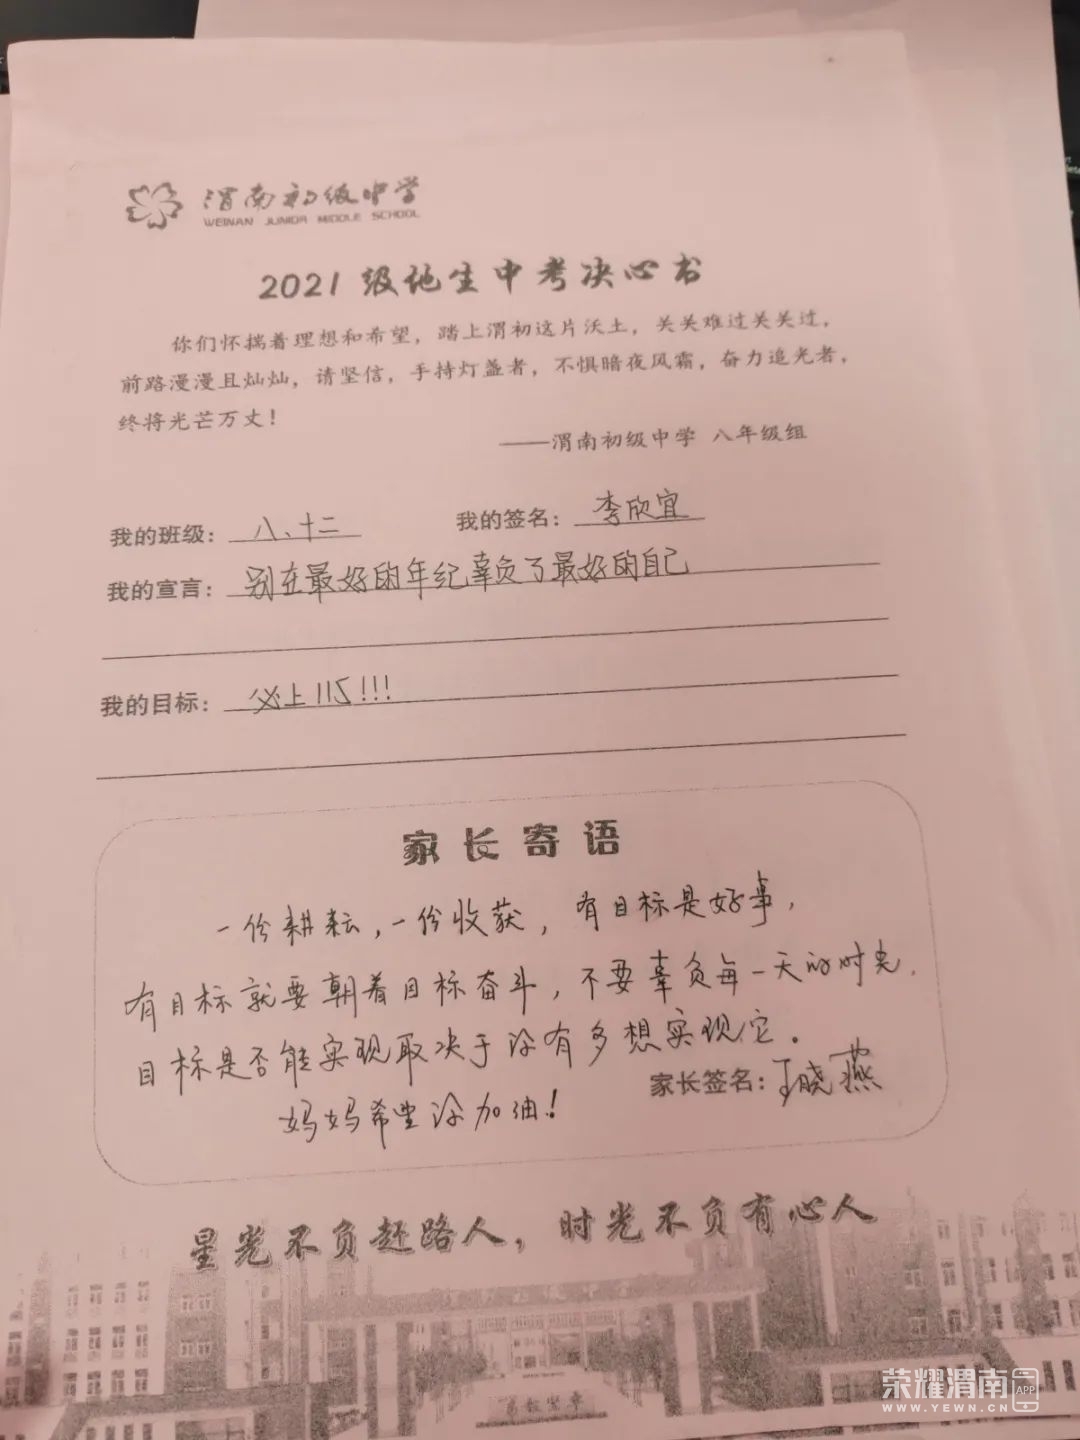 渭南初级中学
WEINAN JUNIOR MIDDLE SCHOOL
2021级地生中考决心书
你们怀揣着理想和希望，踏上渭初这片沃土，关关难过关关过，
前路漫漫且灿灿，请坚信，手持灯盏者，不惧暗夜风霜，奋力追光者，
终将光芒万丈！
——渭南初级中学 八年级组
我的班级：八、十二 我的签名：李欣宜
我的宣言：别在最好的年纪辜负了最好的自己
我的目标：必上115!!!
家长寄语
一份耕耘，一份收获，有目标是好事，
有目标就要朝着目标奋斗，不要辜负每一天的时光，
目标是否能实现取决于你有多想实现它。
家长签名：王晓燕
妈妈希望你加油！
星光不负赶路人，时光不负有心人
荣耀渭南 APP
WWW.YEWN.CN